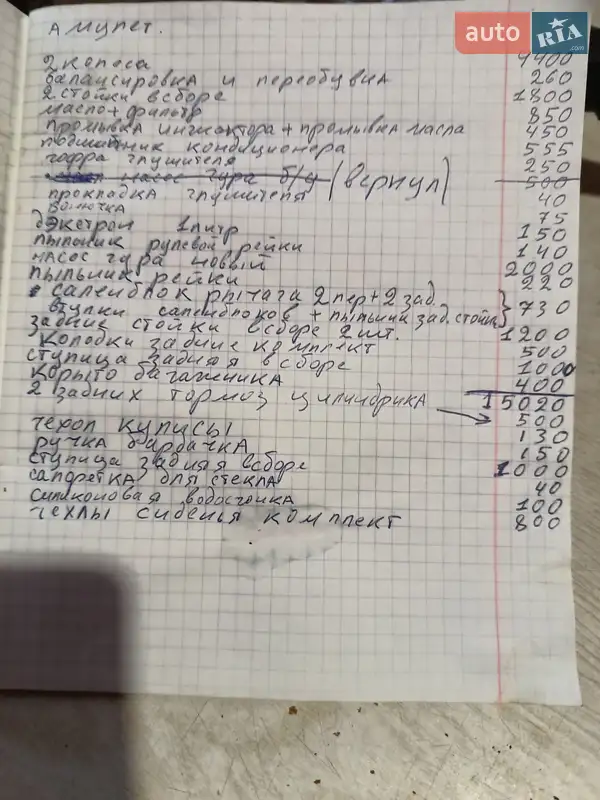 auto RIA .com
Амулет.
2 колеса 4400
балансировка и переобувка 260
2 стойки всборе 1800
масло + фильтр 850
промывка инжиктора + промывка масла 450
подшипник кондиционера 555
гофра глушителя 250
насос гура б/у (вернул) 500
прокладка глушителя 40
75
дэкстрон 1 литр 150
пыльник рулевой рейки 140
насос гура новый 2000
пыльник рейки 220
салейблок рычага 2 пер + 2 зад.
втулки салейблоков + пыльник зад. стойки } 730
задние стойки всборе 2 шт. 1200
колодки задние комплект 500
ступица задняя всборе 1000
корыто багажника 400
15020
2 задних тормоз цилиндрика → 500
чехол кулисы 130
ручка бардачка 150
ступица задняя всборе 1000
салфетка для стекла 40
силиконовая водосгонка 100
чехлы сиденья комплект 800